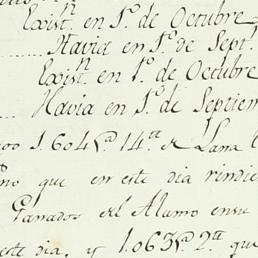 Exist.n en 1.o de Octubre
Havia en 1.o de Sept.
Exist.n en 1.o de Octubre
Havia en 1.o de Septiem
1.604 @.s 14 tt de Lana
que en este dia rindie
Ganados del Alamo en su
este dia, y 1.063 @.s 2 tt que